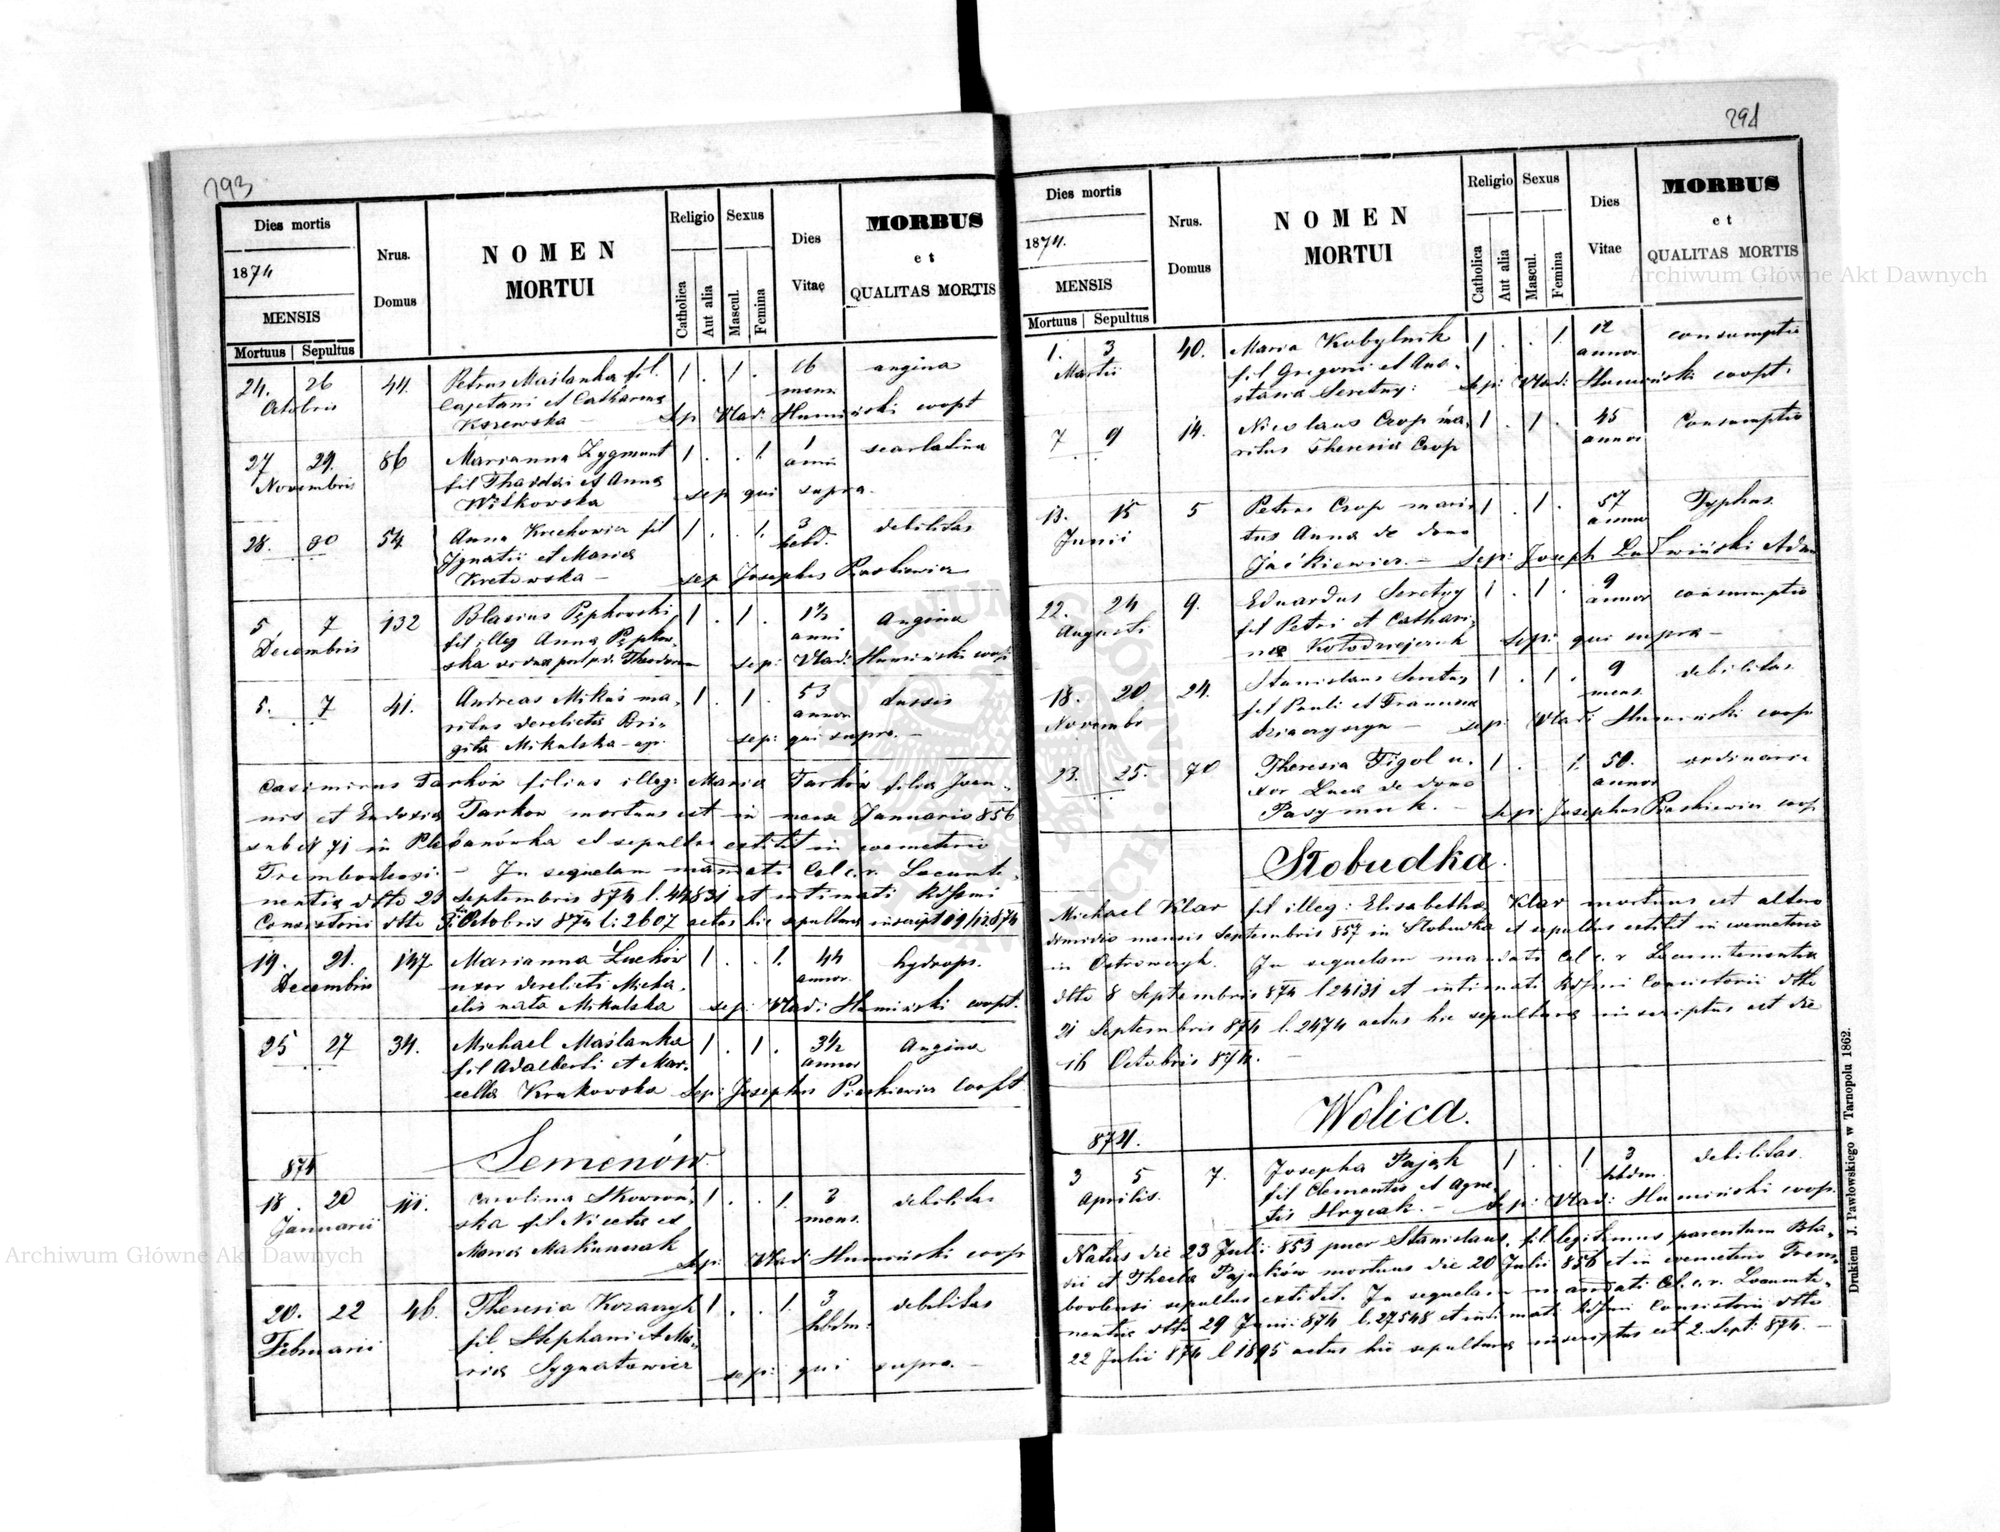 293
Dies mortis
1874
MENSIS
Mortuus | Sepultus
Nrus.
Domus
NOMEN
MORTUI
Religio
Catholica
Aut alia
Sexus
Mascul.
Femina
Dies
Vitae
MORBUS
et
QUALITAS MORTIS
24. 26 44. Petrus Maślanka fil. 1 . 1 . 16 angina
Octobris Cajetani et Catharina mens.
Sep Vlad: Humiński coopt
27 29. 86 Marianna Zygmunt 1 . . 1. 1 scarlatina
Novembris fil Thaddei et Anna anni
Witkowska sep qui supra.
28. 30 54 Anna Krechowicz fil 1 . . 1. 3 debilitas
Ignatii et Maria hebd.
Kretowska — sep Josephus Piaskiewicz
5 7 132 Blasius Pępkowski 1 . 1 . 1½ Angina
Decembris fil illeg Anna Pępkow- anni
ska vidua post p.d. Theodorum sep: Vlad: Humiński coopt
5. 7 41. Andreas Mikuś ma- 1 . 1 . 53 tussis
ritus derelicta Bri- annor
gita Mikulska sep: qui supra. —
Casimirus Tarków filius illeg: Maria Tarków filia Joan-
nis et Eudoxia Tarkow mortuus est in mense Januario 856
sub N 71 in Plebanówka et sepultus extitit in coemeterio
— In sequelam mandati Cel. c. r. Locumte-
nentia dtto 20 Septembris 874 l. 44831 et intimati Rdssmi
Consistorii dtto Octobris 874 l: 2607 actus hic sepultura inscript 09/12 874
19. 21. 147 Marianna Luchów 1 . . 1. 44 hydrops.
Decembris uxor derelicti Micha- annor.
elis nata Mikulska sep: Vlad: Humiński coopt.
25 27 34. Michael Maślanka 1 . 1 . 3½ Angina
fil Adalberti et Mar- annor
cella Krukowska Sep: Josephus Piaskiewicz coopt
874 Semenów
18. 20 111. Carolina Skowroń- 1 . . 1. 3 debilitas
Januarii ska fil Niceta et mens.
Maria Sep: Vlad Humiński coop
20. 22 46. Theresia Kozaczyk 1 . . 1. 3 debilitas
Februarii fil. Stephani et Ma- hbdm:
ria Sygnatowicz sep: qui supra. —
294
Dies mortis
1874.
MENSIS
Mortuus | Sepultus
Nrus.
Domus
NOMEN
MORTUI
Religio
Catholica
Aut alia
Sexus
Mascul.
Femina
Dies
Vitae
MORBUS
et
QUALITAS MORTIS
1. 3 40. Maria Kobylnik 1 . . 1 12 consumptio
Martii fil Gregorii et Ana- annor
stasia Seretny: Sep: Vlad: Humiński coopt.
7 9 14. Nicolaus Crop ma- 1 . 1 . 45 Consumptio
ritus Theresia Crop annor
13. 15 5 Petrus Crop mari- 1 . 1 . 57 Typhus.
Junii tus Anna de domo annor
Jaśkiewicz. — Sep: Joseph Ludwiński Adm
22. 24 9. Eduardus Seretny 1 . 1 . 9 consumptio
Augusti fil Petri et Cathari- annor
na Kołodziejczuk Sep: qui supra —
18. 20 24. Stanislaus Seretny 1 . 1 . 9 debilitas
Novembr fil Pauli et Francisca mens.
— sep: Vlad: Humiński coop
23. 25. 70 Theresia Figol u- 1 . . 1. 50. ordinaria
xor Luca de domo annor
Pasymuk. — Sep: Josephus Piaskiewicz coop
Słobudka.
Michael Klar fil illeg: Elisabetha Klar mortuus est altero
dimidio mensis Septembris 857 in Słobudka et sepultus extitit in coemeterio
in Ostrowczyk. In sequelam mandati Cel. c. r Locumtenentia
dtto 8 Septembris 874 l 24131 et intimati Rdssmi Consistorii dtto
21 Septembris 874 l. 2474 actus hic sepultura inscriptus est die
16 Octobris 874. —
Wolica.
874.
3 5 7. Josepha Pająk 1 . . 1 3 debilitas.
Aprilis. fil Clementis et Agne- hbdm.
tis Hrycak. — Sep: Vlad: Humiński coop.
Natus die 23 Julii 853 puer Stanislaus, fil legitimus parentum Bla-
sii et Thecla Pajuków mortuus die 20 Julii 856 et in coemeterio Trem-
bovlensi sepultus extitit. In sequelam mandati Cel. c. r. Locumte-
nentia dtto 29 Junii 874 l. 27548 et intimati Rdssmi Consistorii dtto
22 Julii 874 l 1895 actus hic sepultura inscriptus est 2. Sept: 874. —
Drukiem J. Pawłowskiego w Tarnopolu 1862.
Archiwum Główne Akt Dawnych
Archiwum Główne Akt Dawnych